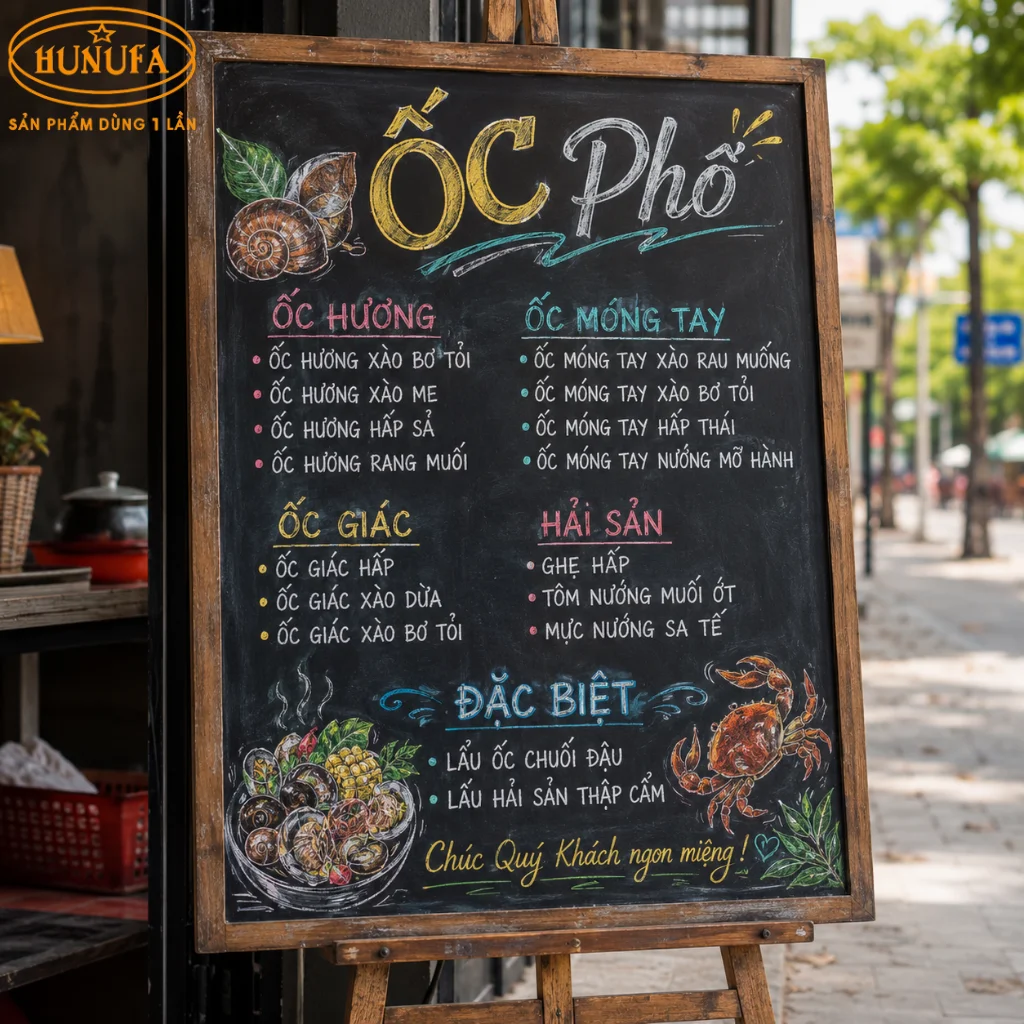 HUNUFA
SẢN PHẨM DÙNG 1 LẦN
ỐC Phố
ỐC HƯƠNG
• ỐC HƯƠNG XÀO BƠ TỎI
• ỐC HƯƠNG XÀO ME
• ỐC HƯƠNG HẤP SẢ
• ỐC HƯƠNG RANG MUỐI
ỐC MÓNG TAY
• ỐC MÓNG TAY XÀO RAU MUỐNG
• ỐC MÓNG TAY XÀO BƠ TỎI
• ỐC MÓNG TAY HẤP THÁI
• ỐC MÓNG TAY NƯỚNG MỠ HÀNH
ỐC GIÁC
• ỐC GIÁC HẤP
• ỐC GIÁC XÀO DỪA
• ỐC GIÁC XÀO BƠ TỎI
HẢI SẢN
• GHẸ HẤP
• TÔM NƯỚNG MUỐI ỚT
• MỰC NƯỚNG SA TẾ
ĐẶC BIỆT
• LẨU ỐC CHUỐI ĐẬU
• LẨU HẢI SẢN THẬP CẨM
Chúc Quý Khách ngon miệng!